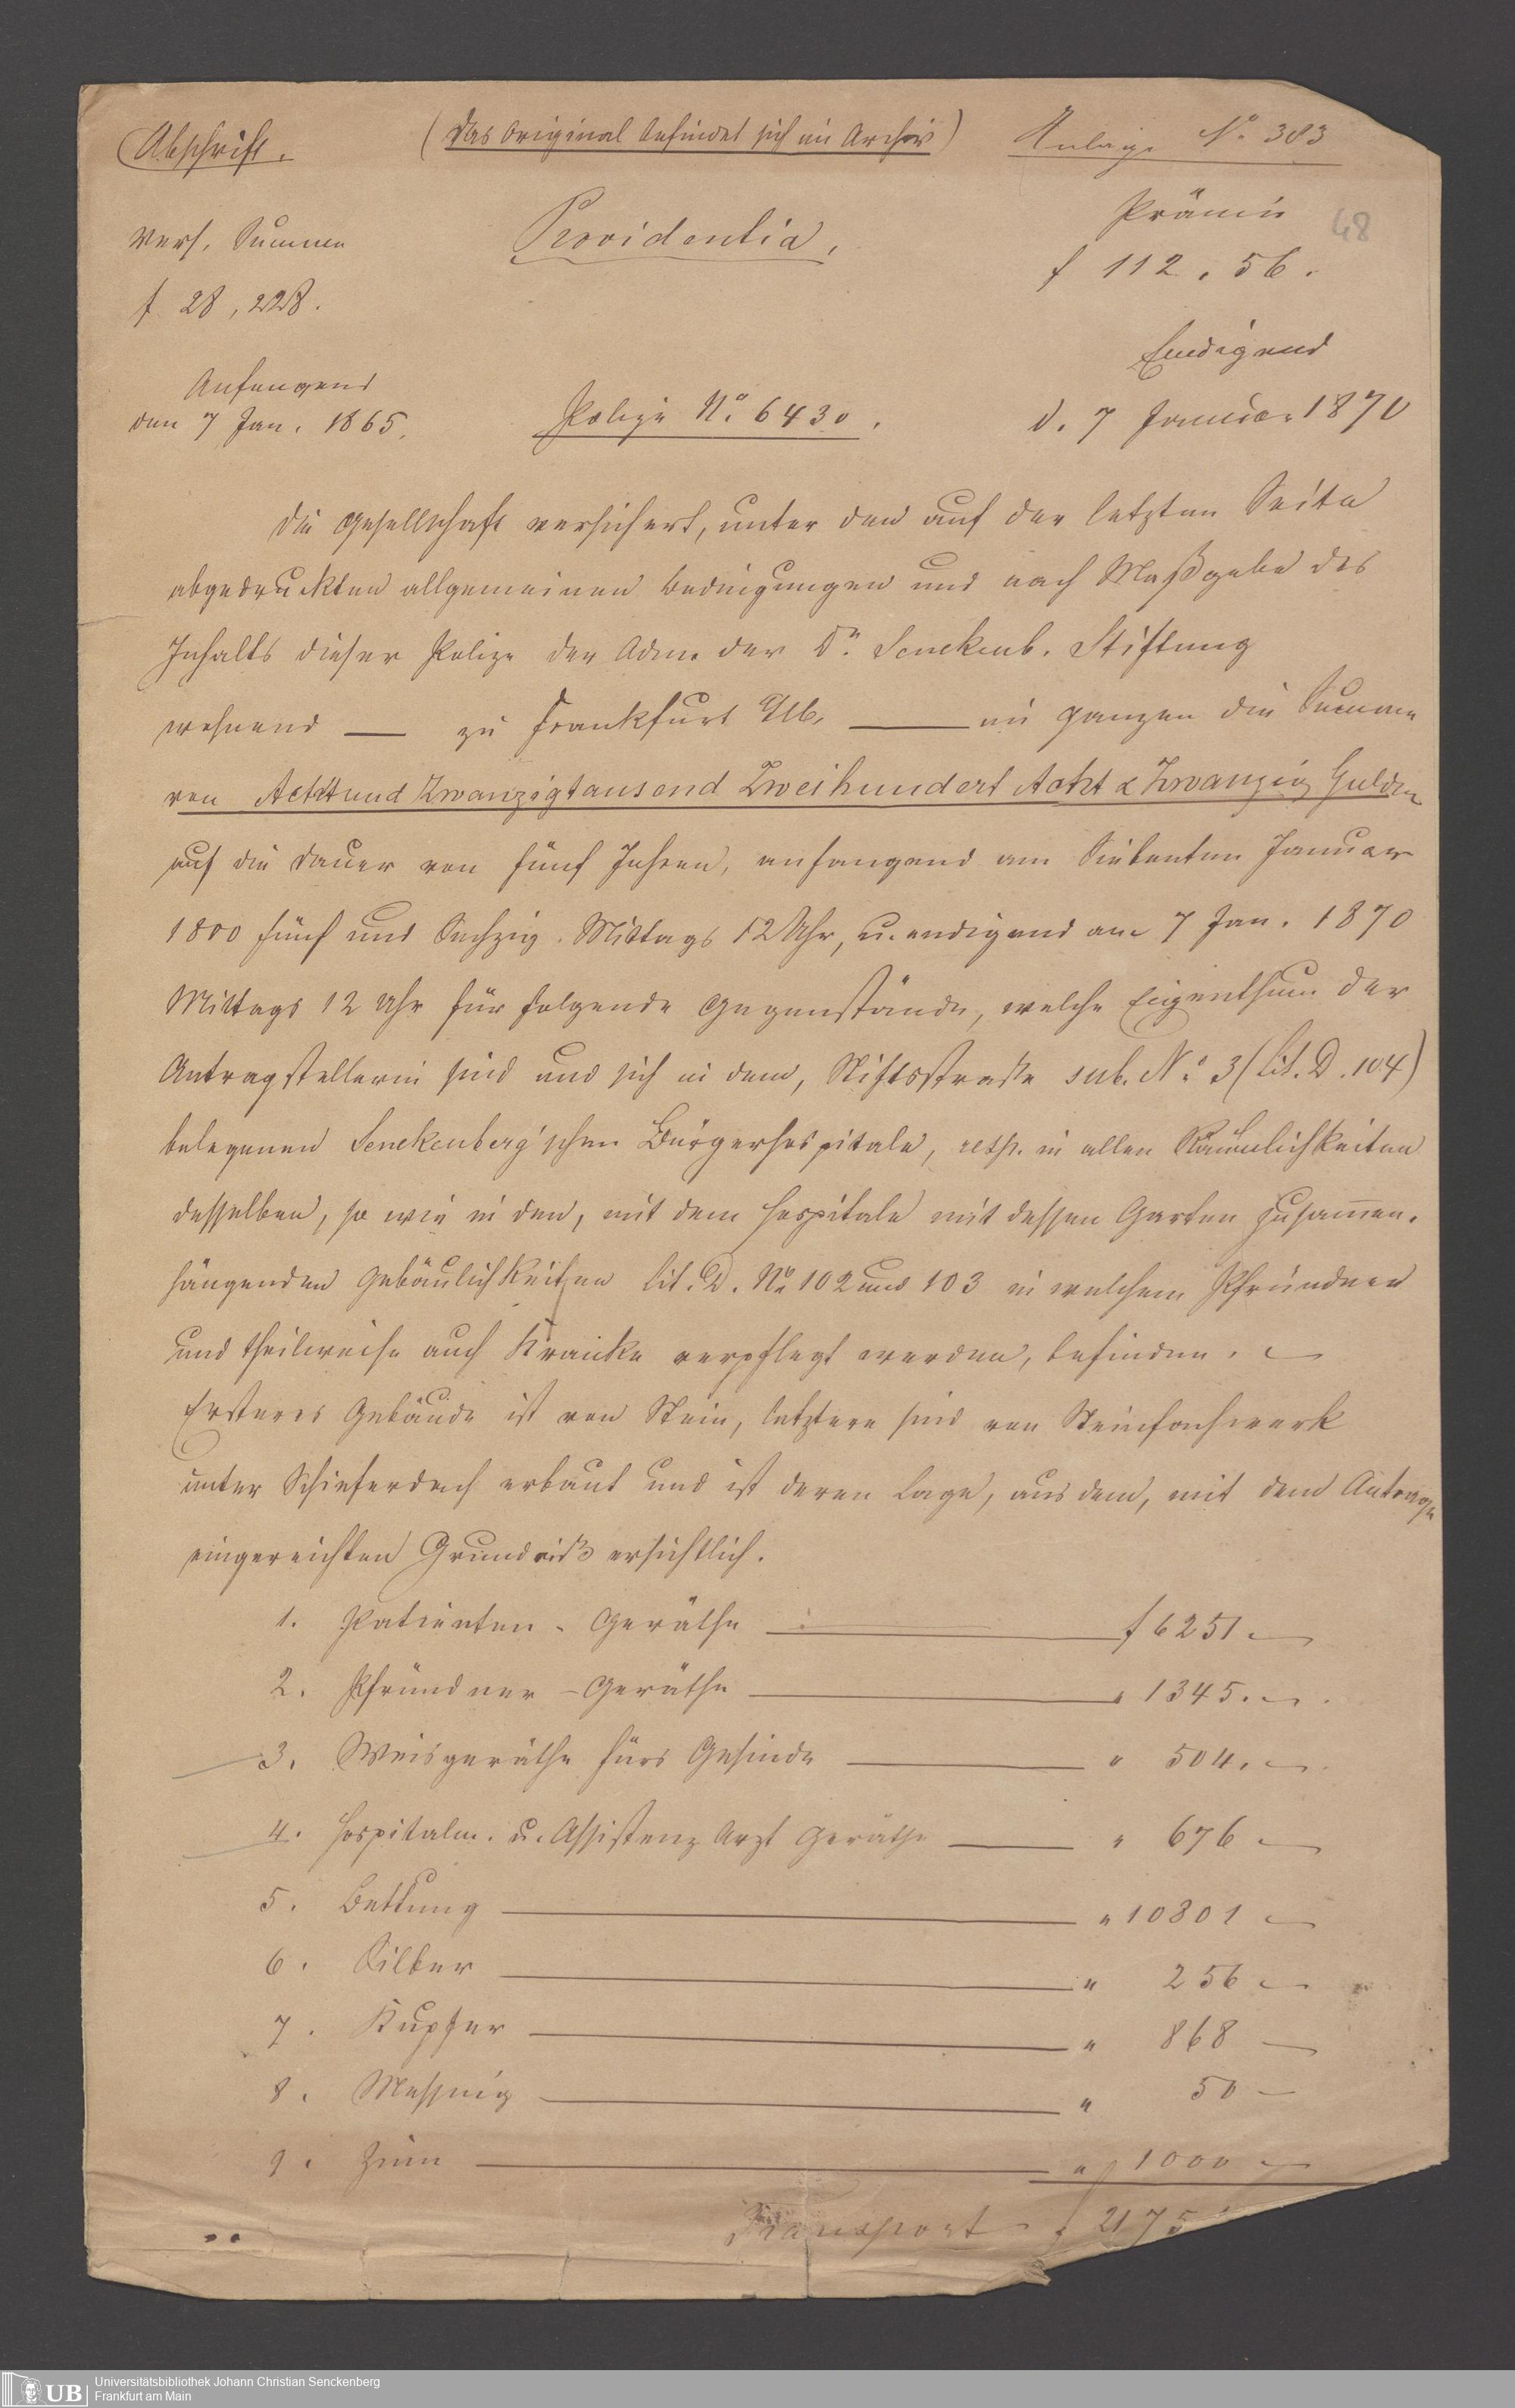 Abschrift. (Das Original befindet sich im Archiv) Anlage No. 383
48
Vers. Summe Providentia. Prämie
f 28,228. f 112.56.
Anfangend Endigend
den 7 Jan. 1865. Polize No. 6430. d. 7 Januar 1870
Die Gesellschaft versichert, unter den auf der letzten Seite
abgedruckten allgemeinen Bedingungen und nach Maßgabe des
Inhalts dieser Polize der Adm. der Dr. Senckenb. Stiftung
wohnend — zu Frankfurt a/M. — im ganzen die Summe
von Achtund Zwanzigtausend Zweihundert Acht & Zwanzig Gulden
auf die Dauer von fünf Jahren, anfangend am Siebenten Januar
1800 fünf und Sechzig. Mittags 12 Uhr, u. endigend am 7 Jan. 1870
Mittags 12 Uhr für folgende Gegenstände, welche Eigenthum der
Antragstellerin sind und sich in dem, Stiftsstraße sub. No. 3 (Lit. D. 104)
belegenen Senckenberg'schen Bürgerhospitale, resp. in allen Räumlichkeiten
desselben, so wie in den, mit dem Hospitale mit dessen Garten zusammen-
hängenden Gebäulichkeiten Lit. D. No. 102 und 103 in welchem Pfründner
und theilweise auch Kranke verpflegt werden, befinden. —
Ersteres Gebäude ist von Stein, letztere sind von Steinfachwerk
unter Schieferdach erbaut und ist deren Lage, aus dem, mit dem Antrage
eingereichten Grundriß ersichtlich.
1. Patienten-Geräthe — f 6251 —
2. Pfründner-Geräthe — " 1345. —
3. Weisgeräthe fürs Gesinde — " 504. —
4. Hospitalm. u. Assistenz Arzt Geräthe — " 676 —
5. Bettung — " 10801 —
6. Silber — " 256 —
7. Kupfer — " 868 —
8. Messing — " 50 —
9. Zinn — " 1000 —
Transport f 2175
UB Universitätsbibliothek Johann Christian Senckenberg
Frankfurt am Main